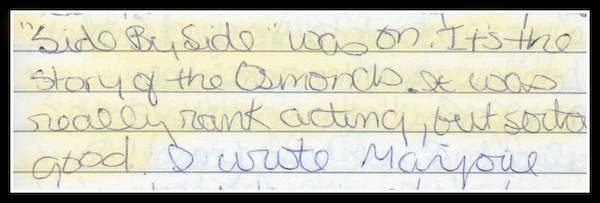 "Side By Side" was on. It's the
story of the Osmonds. It was
really rank acting, but sorta
good. I wrote Marjorie